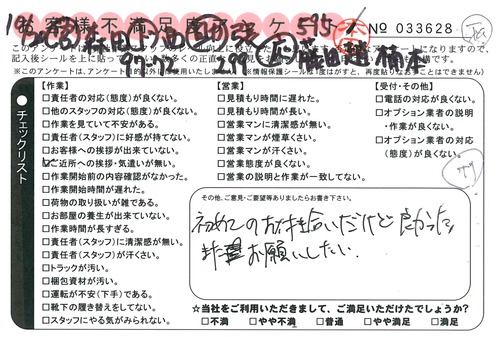 お客様不満足度アンケート
№ 033628
記入後シールを上に貼って
※このアンケートは、アンケート
※情報保護シールは1度はがすと、再度貼りなおすことはできません)
チェックリスト
【作業】
□責任者の対応(態度)が良くない。
□他のスタッフの対応(態度)が良くない。
□作業を見ていて不安がある。
□責任者(スタッフ)に好感が持てない。
□お客様への挨拶が出来ていない。
□ご近所への挨拶・気遣いが無い。
□作業開始前の内容確認がなかった。
□作業開始時間が遅れた。
□荷物の取り扱いが雑である。
□お部屋の養生が出来ていない。
□作業時間が長すぎる。
□責任者(スタッフ)に清潔感が無い。
□責任者(スタッフ)が汗くさい。
□トラックが汚い。
□梱包資材が汚い。
□運転が不安(下手)である。
□靴下の履き替えをしてない。
□スタッフにやる気がみられない。
【営業】
□見積もり時間に遅れた。
□見積もり時間が長い。
□営業マンに清潔感が無い。
□営業マンが煙草くさい。
□営業マンが汗くさい。
□営業態度が良くない。
□営業の説明と作業が一致してない。
【受付・その他】
□電話の対応が良くない。
□オプション業者の説明
・作業が良くない。
□オプション業者の対応
(態度)が良くない。
その他、ご意見・ご要望等ありましたらお書き下さい。
初めてのお付き合いだけど良かった
是非お願いしたい。
☆当社をご利用いただきまして、ご満足いただけたでしょうか?
□不満 □やや不満 □普通 □やや満足 □満足